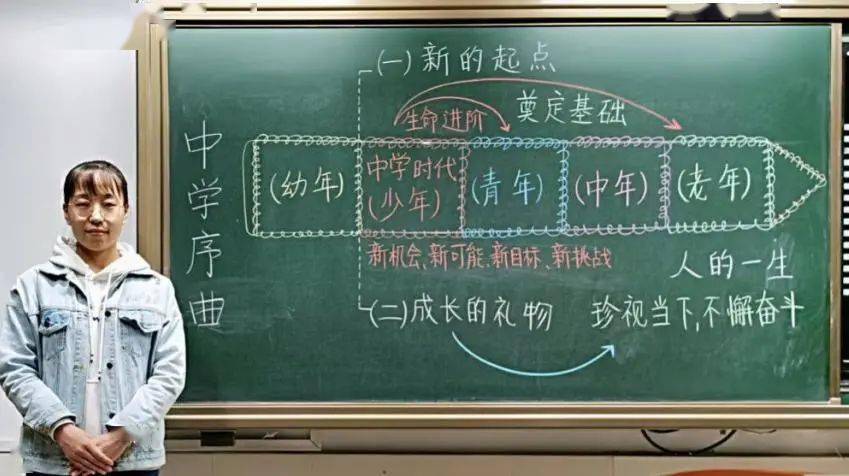 中学序曲
(一)新的起点
生命进阶
奠定基础
(幼年)
中学时代
(少年)
(青年)
(中年)
(老年)
新机会、新可能、新目标、新挑战
人的一生
(二)成长的礼物
珍视当下,不懈奋斗